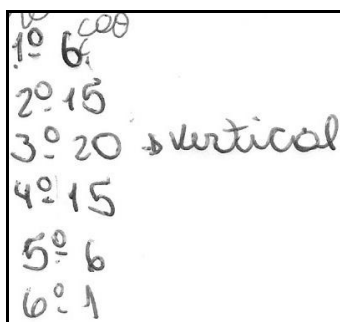 1º 6
2º 15
3º 20 → vertical
4º 15
5º 6
6º 1